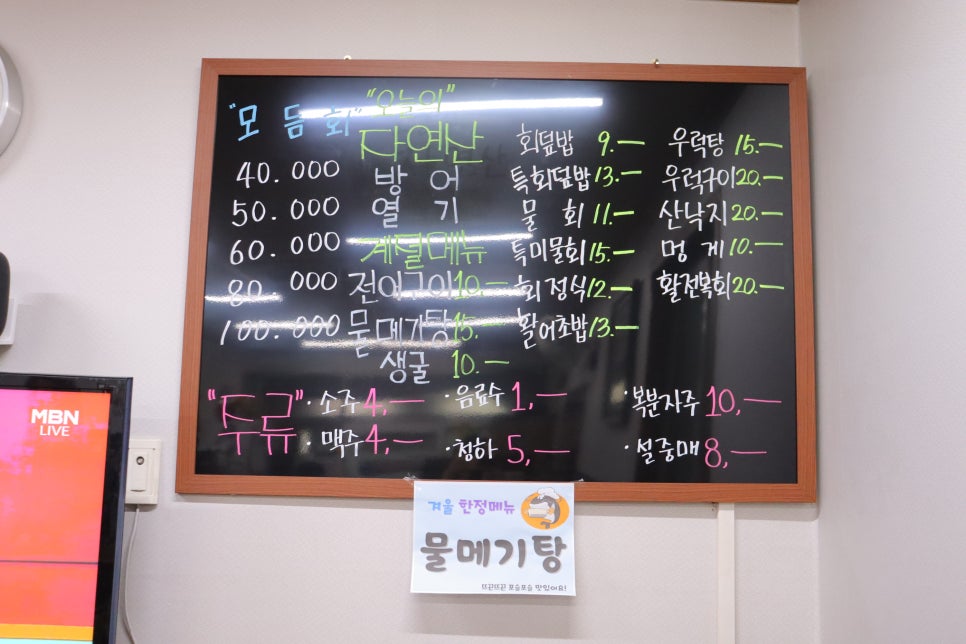 "모듬회"
40.000
50.000
60.000
80.000
100.000
"오늘의"
자연산
방어
열기
계절메뉴
전어구이 10.—
물메기탕 15.—
생굴 10.—
회덮밥 9.—
특회덮밥 13.—
물회 11.—
특미물회 15.—
회정식 12.—
활어초밥 13.—
우럭탕 15.—
우럭구이 20.—
산낙지 20.—
멍게 10.—
활전복회 20.—
"주류"
· 소주 4,—
· 음료수 1,—
· 복분자주 10,—
· 맥주 4,—
· 청하 5,—
· 설중매 8,—
겨울 한정메뉴
물메기탕
뜨끈뜨끈 포슬포슬 맛있어요!
MBN
LIVE